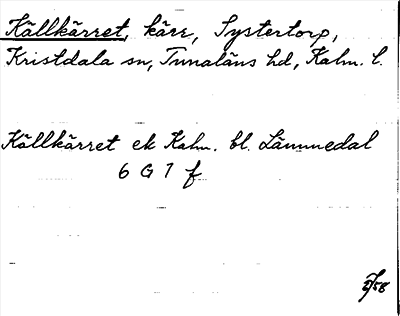 Källkärret, kärr, Systertorp,
Kristdala sn, Tunaläns hd, Kalm. l.
Källkärret ek Kalm. bl. Lämmedal
6 G 7 f